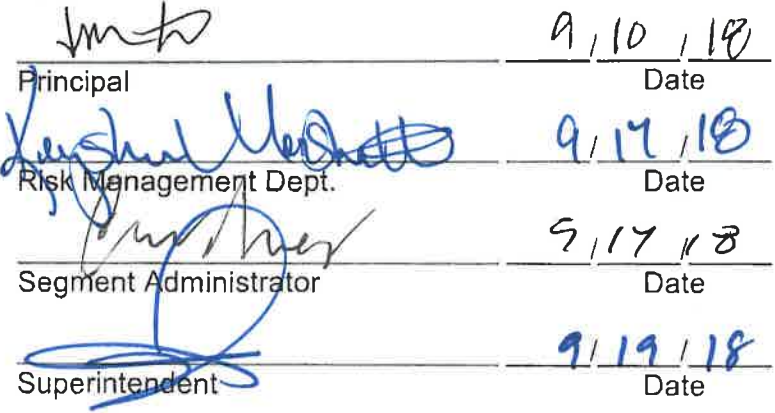 9 / 10 / 18
Principal Date
9 / 17 / 18
Risk Management Dept. Date
9 / 17 / 18
Segment Administrator Date
9 / 19 / 18
Superintendent Date